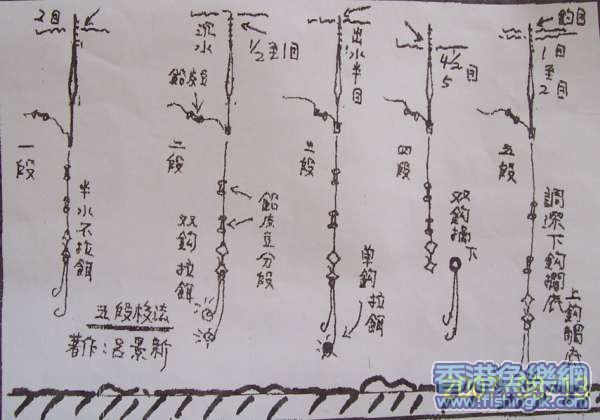 2目
一段
半水不拉餌
沉水
1/2至1目
鉛皮豆
二段
双鈎拉餌
鉛皮豆分段
出水半目
三段
單鈎拉餌
4½目
5
四段
双鈎擱下
釣目
1目
至
2目
五段
調深下鈎擱底
五段梭法
著作：呂景新
香港魚樂網
www.fishinghk.com